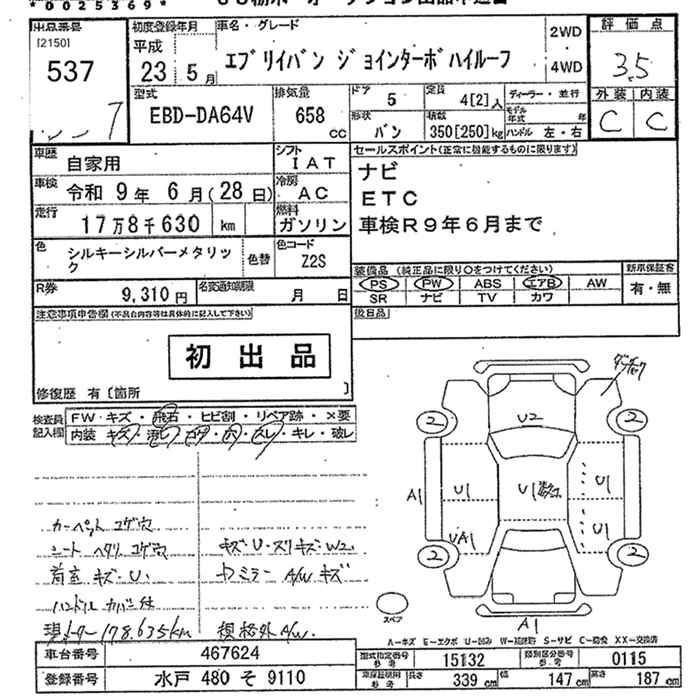 *0025369*
出品番号
[2150]
537
7
初度登録年月
平成
23年 5月
車名・グレード
エブリイバン ジョインターボハイルーフ
2WD
4WD
評価点
3.5
外装 内装
C C
型式
EBD-DA64V
排気量
658
cc
ドア
5
定員
4[2]人
形状
バン
積載
350[250]kg
ディーラー・並行
モデル年式 年
ハンドル 左・右
車歴
自家用
シフト
IAT
車検
令和 9年 6月(28日)
冷房
AC
走行
17万8千630 km
燃料
ガソリン
色
シルキーシルバーメタリック
色替
色コード
Z2S
R券
9,310円
名変通知期限
月 日
セールスポイント(正常に機能するものに限ります)
ナビ
ETC
車検R9年6月まで
装備品 (純正品に限り○をつけてください)
PS PW ABS エアB AW
SR ナビ TV カワ
新車保証書
有・無
後日品
注意事項申告欄(不具合内容等は具体的に記入して下さい)
初出品
修復歴 有〔箇所 〕
検査員記入欄
FW キズ・飛石・ヒビ割・リペア跡・×要
内装 キズ・汚レ・コゲ・穴・スレ・キレ・破レ
カーペット コゲ穴
シート ヘタリ コゲ穴
荷室 キズ・U.
ハンドル カバー付
現メーター178,635km
キズ・U・スリキズ・W2.
ミラー A/W キズ
規格外A/W.
2 U2 2
A1 U1 U1 U1
UA1 U1
2 2
スペア
A1
A-キズ E-エクボ U-凹み W-補修跡 S-サビ C-腐食 XX-交換済
車台番号
467624
登録番号
水戸 480 そ 9110
型式指定番号
参考
15132
類別区分番号
参考
0115
車庫証明用
参考
長さ
339 cm
幅
147 cm
高さ
187 cm